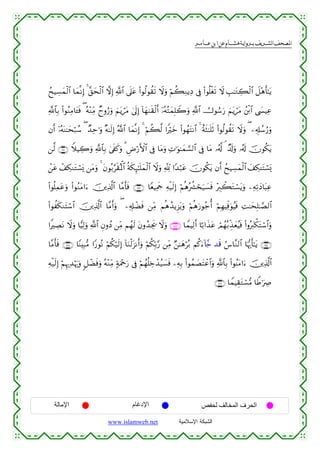 المصحف الشريف برواية هشام عن ابن عامر
يَٰٓأَهۡلَ ٱلۡكِتَٰبِ لَا تَغۡلُوا۟ فِى دِينِكُمۡ وَلَا تَقُولُوا۟ عَلَى ٱللَّهِ إِلَّا ٱلۡحَقَّ ۚ إِنَّمَا ٱلۡمَسِيحُ
عِيسَى ٱبۡنُ مَرۡيَمَ رَسُولُ ٱللَّهِ وَكَلِمَتُهُۥٓ أَلۡقَىٰهَآ إِلَىٰ مَرۡيَمَ وَرُوحٌ مِّنۡهُ ۖ فَـَٔامِنُوا۟ بِٱللَّهِ
وَرُسُلِهِۦ ۖ وَلَا تَقُولُوا۟ ثَلَٰثَةٌ ۚ ٱنتَهُوا۟ خَيۡرًا لَّكُمۡ ۚ إِنَّمَا ٱللَّهُ إِلَٰهٌ وَٰحِدٌ ۖ سُبۡحَٰنَهُۥٓ أَن
يَكُونَ لَهُۥ وَلَدٌ ۘ لَّهُۥ مَا فِى ٱلسَّمَٰوَٰتِ وَمَا فِى ٱلۡأَرۡضِ ۗ وَكَفَىٰ بِٱللَّهِ وَكِيلًا لَّن
يَسۡتَنكِفَ ٱلۡمَسِيحُ أَن يَكُونَ عَبۡدًا لِّلَّهِ وَلَا ٱلۡمَلَٰٓئِكَةُ ٱلۡمُقَرَّبُونَ ۚ وَمَن يَسۡتَنكِفۡ عَنۡ
عِبَادَتِهِۦ وَيَسۡتَكۡبِرۡ فَسَيَحۡشُرُهُمۡ إِلَيۡهِ جَمِيعًا فَأَمَّا ٱلَّذِينَ ءَامَنُوا۟ وَعَمِلُوا۟
ٱلصَّٰلِحَٰتِ فَيُوَفِّيهِمۡ أُجُورَهُمۡ وَيَزِيدُهُم مِّن فَضۡلِهِۦ ۖ وَأَمَّا ٱلَّذِينَ ٱسۡتَنكَفُوا۟
وَٱسۡتَكۡبَرُوا۟ فَيُعَذِّبُهُمۡ عَذَابًا أَلِيمًا وَلَا يَجِدُونَ لَهُم مِّن دُونِ ٱللَّهِ وَلِيًّا وَلَا نَصِيرًا
يَٰٓأَيُّهَا ٱلنَّاسُ قَد جَّآءَكُم بُرۡهَٰنٌ مِّن رَّبِّكُمۡ وَأَنزَلۡنَآ إِلَيۡكُمۡ نُورًا مُّبِينًا فَأَمَّا
ٱلَّذِينَ ءَامَنُوا۟ بِٱللَّهِ وَٱعۡتَصَمُوا۟ بِهِۦ فَسَيُدۡخِلُهُمۡ فِى رَحۡمَةٍ مِّنۡهُ وَفَضۡلٍ وَيَهۡدِيهِمۡ إِلَيۡهِ
صِرَٰطًا مُّسۡتَقِيمًا
الحرف المخالف لحفص الإدغام الإمالة
www.islamweb.net الشبكة الإسلامية